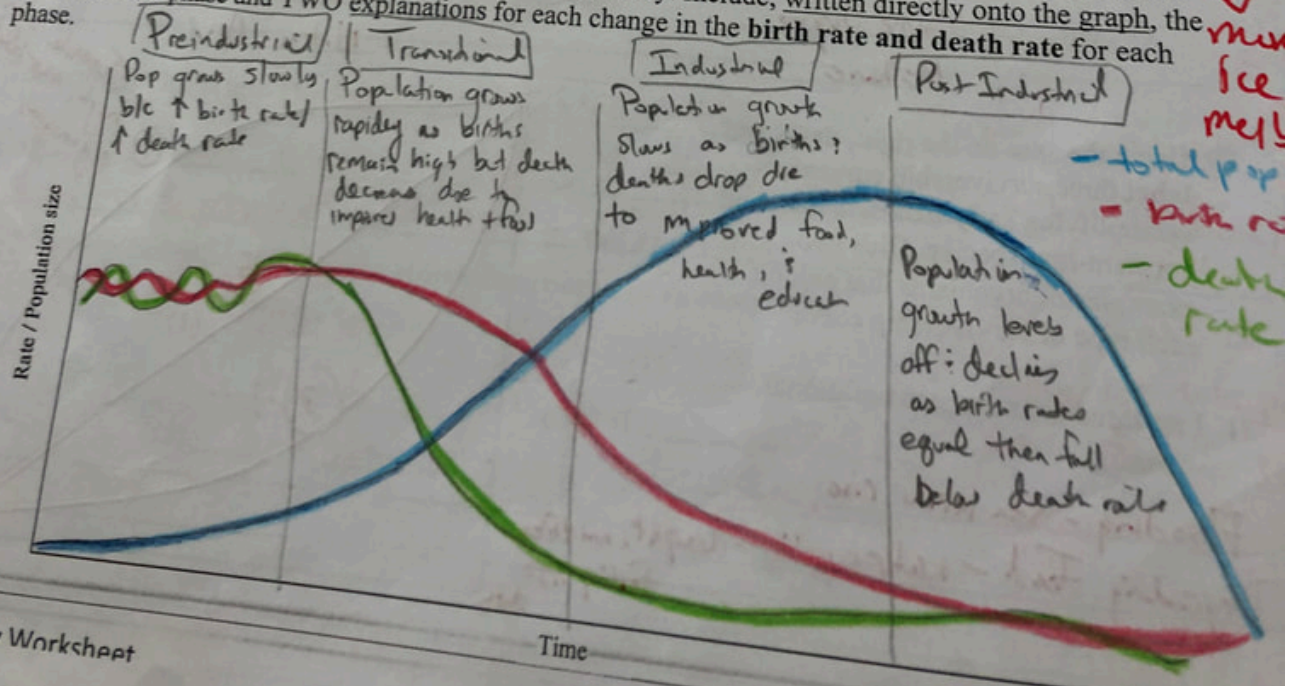 explanations for each change in the birth rate and death rate for each
written directly onto the graph, the
phase.
Preindustrial
Pop grows slowly
b/c ↑ birth rate/
↑ death rate
Transitional
Population grows
rapidly as births
remain high but death
due to
health + food
Industrial
Population growth
slows as births &
deaths drop due
to improved food,
health, &
Post Industrial
Population
growth levels
off & declines
as birth rates
equal then fall
below death rate
ice
- total pop
- birth
- death
rate
Rate / Population size
Time
Worksheet